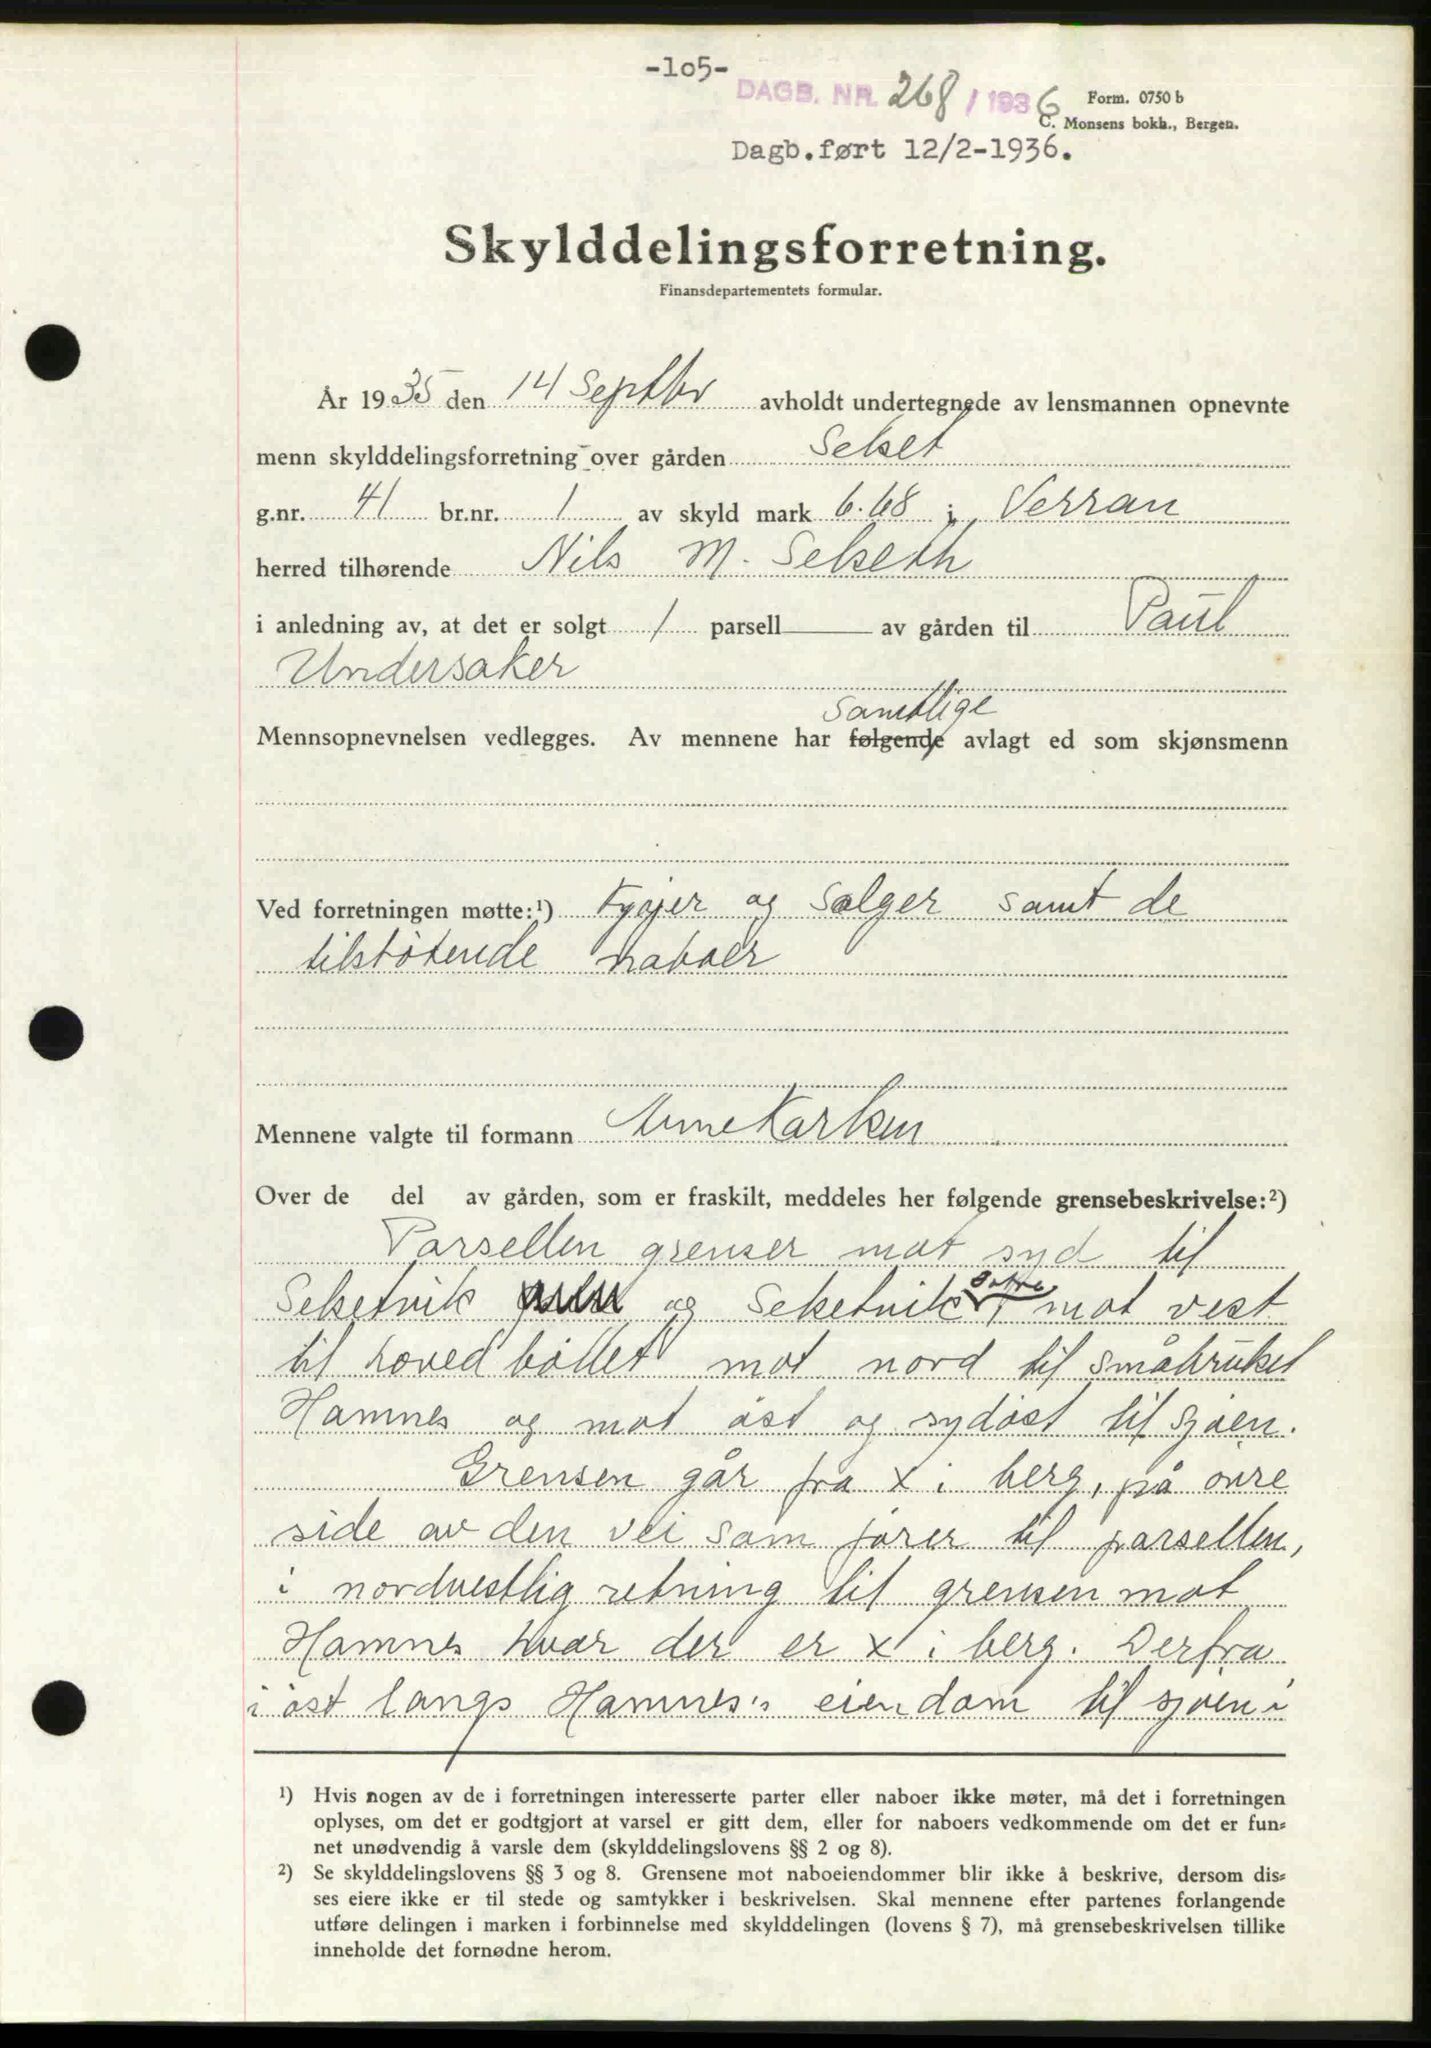 -105-
DAGB. NR. 268 / 1936
Form. 0750 b
C. Monsens bokh., Bergen.
Dagb.ført 12/2-1936.
Skylddelingsforretning.
Finansdepartementets formular.
År 1935 den 14 Septbr avholdt undertegnede av lensmannen opnevnte
menn skylddelingsforretning over gården Selset
g.nr. 41 br.nr. 1 av skyld mark 6.68 i Verran
herred tilhørende Nils M. Selseth
i anledning av, at det er solgt 1 parsell av gården til Paul
Undersaker
samtlige
Mennsopnevnelsen vedlegges. Av mennene har følgende avlagt ed som skjønsmenn
Ved forretningen møtte:¹) Kjøjer og Selger samt de
tilstøtende naboer
Mennene valgte til formann Arne Karlsen
Over de del av gården, som er fraskilt, meddeles her følgende grensebeskrivelse:²)
Parsellen grenser mot syd til
Selsetvik og Selsetvik østre mot vest
til hovedbøllet mot nord til småbruket
Hamnes og mot øst og sydøst til sjøen.
Grensen går fra x i berg, på øvre
side av den vei som fører til parsellen,
i nordvestlig retning til grensen mot
Hamnes hvor der er x i berg. Derfra
i øst langs Hamnes's eiendom til sjøen i
¹) Hvis nogen av de i forretningen interesserte parter eller naboer ikke møter, må det i forretningen
oplyses, om det er godtgjort at varsel er gitt dem, eller for naboers vedkommende om det er fun-
net unødvendig å varsle dem (skylddelingslovens §§ 2 og 8).
²) Se skylddelingslovens §§ 3 og 8. Grensene mot naboeiendommer blir ikke å beskrive, dersom dis-
ses eiere ikke er til stede og samtykker i beskrivelsen. Skal mennene efter partenes forlangende
utføre delingen i marken i forbinnelse med skylddelingen (lovens § 7), må grensebeskrivelsen tillike
inneholde det fornødne herom.